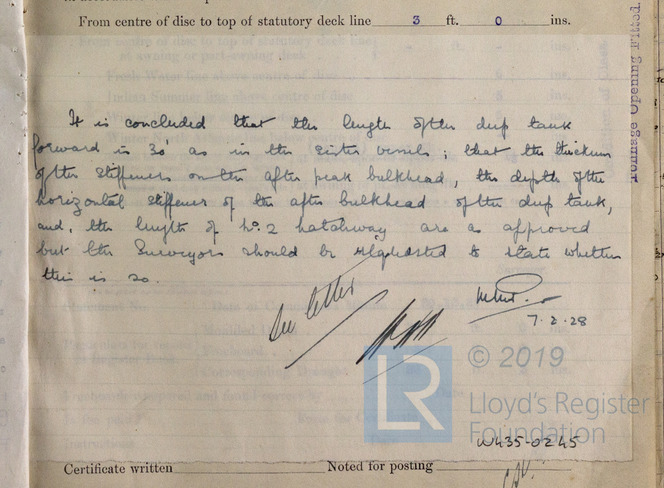 From centre of disc to top of statutory deck line 3 ft. 0 ins.
It is concluded that the length of the deep tank
forward is 30' as in the sister vessels; that the thickness
of the stiffeners on the after peak bulkhead, the depth of the
horizontal stiffener of the after bulkhead of the deep tank,
and, the length of No. 2 hatchway are as approved
but the Surveyors should be requested to state whether
this is so.
See letter
7.2.28
Tonnage Opening Fitted.
LR
© 2019
Lloyd's Register
Foundation
W435-0245
Certificate written Noted for posting